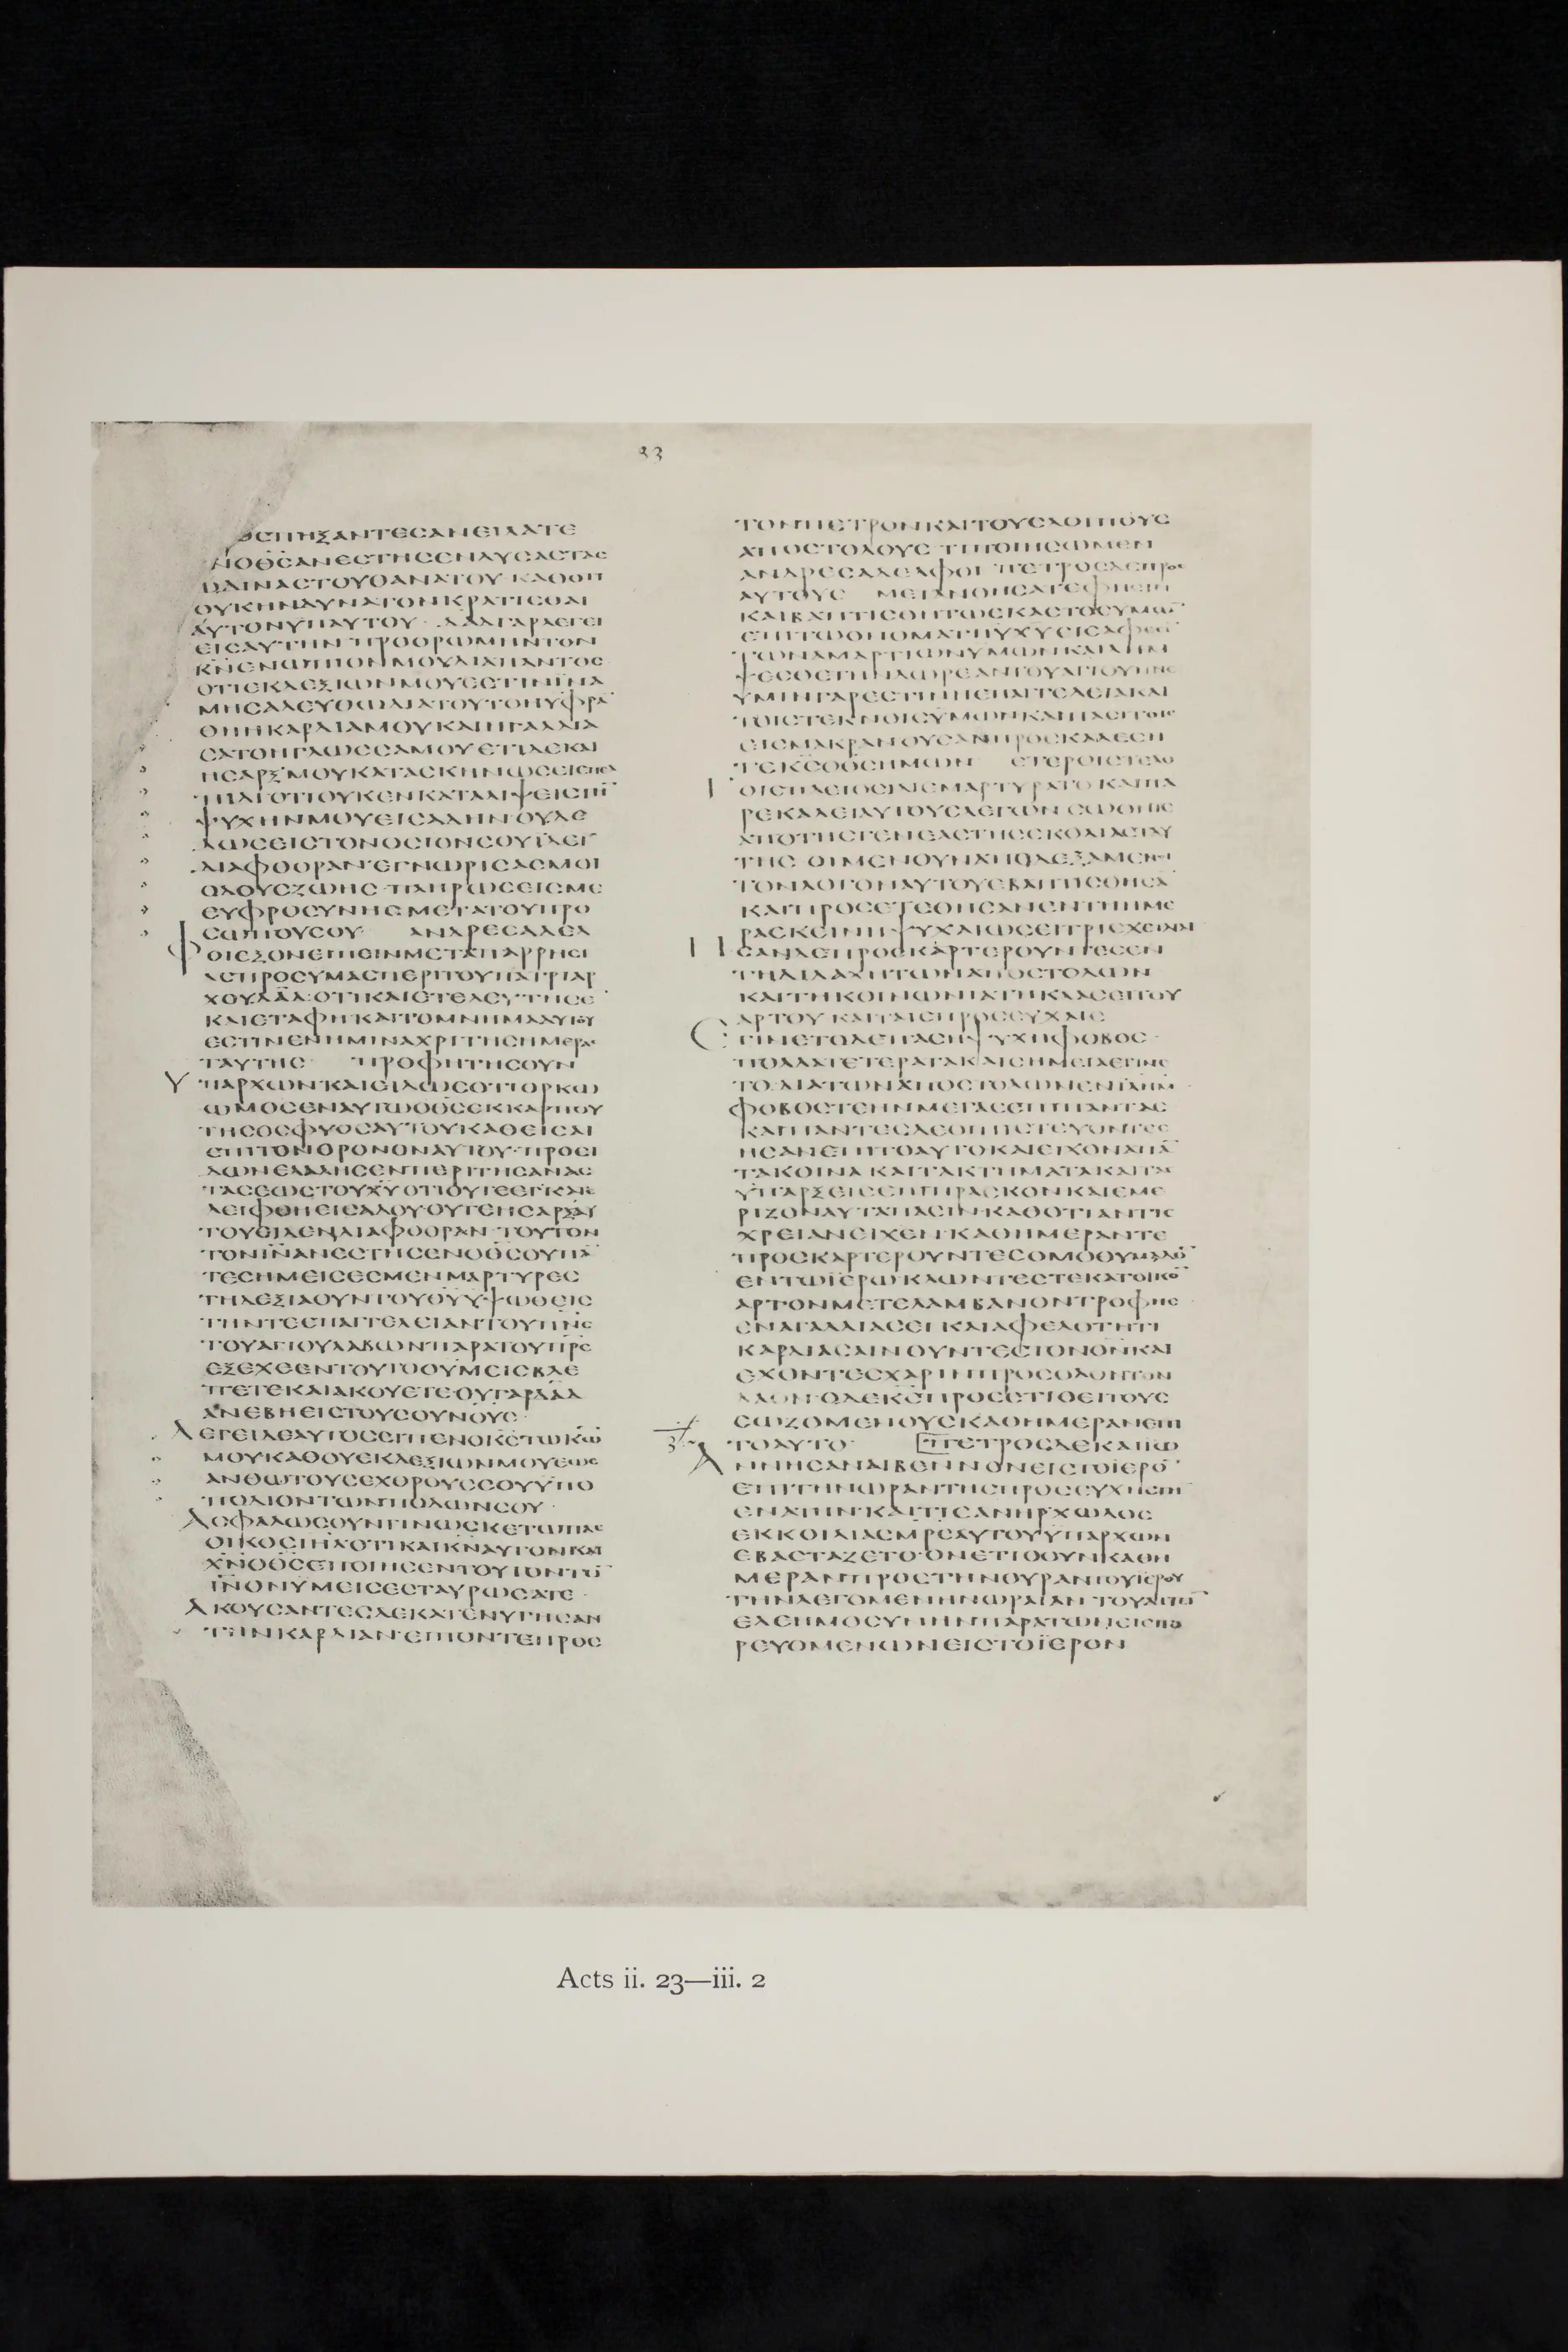 33
ΟϹΠΗΞΑΝΤΕϹΑΝΕΙΛΑΤΕ
ΟΥΚΗΝΔΥΝΑΤΟΝΚΡΑΤΙϹΘΑΙ
ΑΥΤΟΝΥΠΑΥΤΟΥ· ΔΑΔΓΑΡΛΕΓΕΙ
ΕΙϹΑΥΤΗΝ·ΠΡΟΟΡΩΜΗΝΤΟΝ
ΚΝ̄ΕΝΩΠΙΟΝΜΟΥΔΙΑΠΑΝΤΟϹ
ΟΤΙΕΚΔΕΞΙΩΝΜΟΥΕϹΤΙΝΪΝΑ
ΜΗϹΑΛΕΥΘΩΔΙΑΤΟΥΤΟΗΥΦΡᾹ
ΘΗΗΚΑΡΔΙΑΜΟΥΚΑΙΗΓΑΛΛΙΑ
ϹΑΤΟΗΓΛΩϹϹΑΜΟΥΕΤΙΔΕΚΑΙ
ΗϹΑΡΞ·ΜΟΥΚΑΤΑϹΚΗΝΩϹΕΙΕΠΕΛ
ΠΙΔΙΟΤΙΟΥΚΕΝΚΑΤΑΛΙΨΕΙϹΤΗ̄
ΨΥΧΗΝΜΟΥΕΙϹΑΔΗΝΟΥΔΕ
ΔΩϹΕΙϹΤΟΝΟϹΙΟΝϹΟΥΪΔΕῙ
ΔΙΑΦΘΟΡΑΝ·ΕΓΝΩΡΙϹΑϹΜΟΙ
ΟΔΟΥϹΖΩΗϹ·ΠΛΗΡΩϹΕΙϹΜΕ
ΕΥΦΡΟϹΥΝΗϹΜΕΤΑΤΟΥΠΡΟ
ϹΩΠΟΥϹΟΥ· ΑΝΔΡΕϹΑΔΕΛ
ΦΟΙΕΞΟΝΕΙΠΕΙΝΜΕΤΑΠΑΡΡΗϹΙ
ΑϹΠΡΟϹΥΜΑϹΠΕΡΙΤΟΥΠΑΤΡΙΑΡ
ΧΟΥΔᾹΔ·ΟΤΙΚΑΙΕΤΕΛΕΥΤΗϹΕ
ΚΑΙΕΤΑΦΗΚΑΙΤΟΜΝΗΜΑΑΥΤΟΥ
ΕϹΤΙΝΕΝΗΜΙΝΑΧΡΙΤΗϹΗΜΕΡΑϹ
ΤΑΥΤΗϹ· ΠΡΟΦΗΤΗϹΟΥΝ
ΥΠΑΡΧΩΝΚΑΙΕΙΔΩϹΟΤΙΟΡΚΩ
ΩΜΟϹΕΝΑΥΤΩΟΘ̄ϹΕΚΚΑΡΠΟΥ
ΤΗϹΟϹΦΥΟϹΑΥΤΟΥΚΑΘΕΙϹΑΙ
ΕΠΙΤΟΝΘΡΟΝΟΝΑΥΤΟΥ·ΠΡΟΕΙ
ΔΩΝΕΛΑΛΗϹΕΝΠΕΡΙΤΗϹΑΝΑϹ
ΤΑϹΕΩϹΤΟΥΧ̄ΥΟΤΙΟΥΤΕΕΓΚΑΤΕ
ΛΕΙΦΘΗΕΙϹΑΔΟΥ·ΟΥΤΕΗϹΑΡΞΑΥ
ΤΟΥΕΙΔΕΝΔΙΑΦΘΟΡΑΝ·ΤΟΥΤΟΝ
ΤΟΝῙΝΑΝΕϹΤΗϹΕΝΟΘ̄ϹΟΥΠᾹ
ΤΕϹΗΜΕΙϹΕϹΜΕΝΜΑΡΤΥΡΕϹ
ΤΗΔΕΞΙΑΟΥΝΤΟΥΘ̄ΥΥΨΩΘΕΙϹ
ΤΗΝΤΕΕΠΑΓΓΕΛΕΙΑΝΤΟΥΠΝ̄Ϲ
ΤΟΥΑΓΙΟΥΛΑΒΩΝΠΑΡΑΤΟΥΠΡ̄Ϲ
ΕΞΕΧΕΕΝΤΟΥΤΟΟΥΜΕΙϹΒΛΕ
ΠΕΤΕΚΑΙΑΚΟΥΕΤΕ·ΟΥΓΑΡΔᾹΔ
ΑΝΕΒΗΕΙϹΤΟΥϹΟΥΝΟΥϹ·
ΛΕΓΕΙΔΕΑΥΤΟϹΕΙΠΕΝΟΚ̄ϹΤΩΚ̄Ω
ΜΟΥΚΑΘΟΥΕΚΔΕΞΙΩΝΜΟΥΕΩϹ
ΑΝΘΩΤΟΥϹΕΧΘΡΟΥϹϹΟΥΥΠΟ
ΠΟΔΙΟΝΤΩΝΠΟΔΩΝϹΟΥ·
ΑϹΦΑΛΩϹΟΥΝΓΙΝΩϹΚΕΤΩΠΑϹ
ΟΙΚΟϹΙΗ̄Λ·ΟΤΙΚΑΙΚΝ̄ΑΥΤΟΝΚΑΙ
Χ̄ΝΟΘ̄ϹΕΠΟΙΗϹΕΝΤΟΥΤΟΝΤΟ̄
ΙΝ̄ΟΝΥΜΕΙϹΕϹΤΑΥΡΩϹΑΤΕ·
ΑΚΟΥϹΑΝΤΕϹΔΕΚΑΤΕΝΥΓΗϹΑΝ
ΤΗΝΚΑΡΔΙΑΝ·ΕΙΠΟΝΤΕΠΡΟϹ
ΤΟΝΠΕΤΡΟΝΚΑΙΤΟΥϹΛΟΙΠΟΥϹ
ΑΠΟϹΤΟΛΟΥϹ·ΤΙΠΟΙΗϹΩΜΕΝ
ΑΝΔΡΕϹΑΔΕΛΦΟΙ·ΠΕΤΡΟϹΔΕΠΡΟϹ
ΡΕΚΑΛΕΙΑΥΤΟΥϹΛΕΓΩΝϹΩΘΗΤΕ
ΑΠΟΤΗϹΓΕΝΕΑϹΤΗϹϹΚΟΛΙΑϹΤΑΥ
ΤΟΝΛΟΓΟΝΑΥΤΟΥΕΒΑΠΤΙϹΘΗϹᾹ
ΚΑΙΠΡΟϹΕΤΕΘΗϹΑΝΕΝΤΗΗΜΕ
ΡΑΕΚΕΙΝΗΨΥΧΑΙΩϹΕΙΤΡΙϹΧΕΙΛΙΑΙ
ΗϹΑΝΔΕΠΡΟϹΚΑΡΤΕΡΟΥΝΤΕϹΕΝ
ΤΗΔΙΔΑΧΗΤΩΝΑΠΟϹΤΟΛΩΝ
ΚΑΙΤΗΚΟΙΝΩΝΙΑΤΗΚΛΑϹΕΙΤΟΥ
ΑΡΤΟΥ·ΚΑΙΤΑΙϹΠΡΟϹΕΥΧΑΙϹ
ΕΓΙΝΕΤΟΔΕΠΑϹΗΨΥΧΗΦΟΒΟϹ·
ΦΟΒΟϹΤΕΗΝΜΕΓΑϹΕΠΙΠΑΝΤΑϹ
ΗϹΑΝΕΠΙΤΟΑΥΤΟΚΑΙΕΙΧΟΝΑΠᾹ
ΤΑΚΟΙΝΑ·ΚΑΙΤΑΚΤΗΜΑΤΑΚΑΙΤΑϹ
ΥΠΑΡΞΕΙϹΕΠΙΠΡΑϹΚΟΝΚΑΙΕΜΕ
ΡΙΖΟΝΑΥΤΑΠΑϹΙΝ·ΚΑΘΟΤΙΑΝΤΙϹ
ΧΡΕΙΑΝΕΙΧΕΝ·ΚΑΘΗΜΕΡΑΝΤΕ
ΠΡΟϹΚΑΡΤΕΡΟΥΝΤΕϹΟΜΟΘΥΜΑΔΟ̄
ΕΝΤΩΪΕΡΩ·ΚΛΩΝΤΕϹΤΕΚΑΤΟΙΚΟ̄
ΑΡΤΟΝΜΕΤΕΛΑΜΒΑΝΟΝΤΡΟΦΗϹ
ΕΝΑΓΑΛΛΙΑϹΕΙ·ΚΑΙΑΦΕΛΟΤΗΤΙ
ΚΑΡΔΙΑϹΑΙΝΟΥΝΤΕϹΤΟΝΘ̄ΝΚΑΙ
ΕΧΟΝΤΕϹΧΑΡΙΝΠΡΟϹΟΛΟΝΤΟΝ
ΛΑΟΝ·ΟΔΕΚ̄ϹΠΡΟϹΕΤΙΘΕΙΤΟΥϹ
ϹΩΖΟΜΕΝΟΥϹΚΑΘΗΜΕΡΑΝΕΠΙ
ΤΟΑΥΤΟ· ΠΕΤΡΟϹΔΕΚΑΙΙΩ
ΑΝΝΗϹΑΝΑΙΒΕΝΝΟΝΕΙϹΤΟΪΕΡΟ̄
ΕΠΙΤΗΝΩΡΑΝΤΗϹΠΡΟϹΕΥΧΗϹΤΗ̄
ΕΝΑΤΗΝ·ΚΑΙΤΙϹΑΝΗΡΧΩΛΟϹ
ΕΚΚΟΙΛΙΑϹΜΡ̄ϹΑΥΤΟΥΫΠΑΡΧΩΝ
ΕΒΑϹΤΑΖΕΤΟ·ΟΝΕΤΙΘΟΥΝΚΑΘΗ
ΜΕΡΑΝΠΡΟϹΤΗΝΘΥΡΑΝΤΟΥΪΕΡΟΥ
ΤΗΝΛΕΓΟΜΕΝΗΝΩΡΑΙΑΝ·ΤΟΥΑΙΤΕῙ
ΕΛΕΗΜΟϹΥΝΗΝΠΑΡΑΤΩΝΕΙϹΠΟ
ΡΕΥΟΜΕΝΩΝΕΙϹΤΟΪΕΡΟΝ
Acts ii. 23—iii. 2